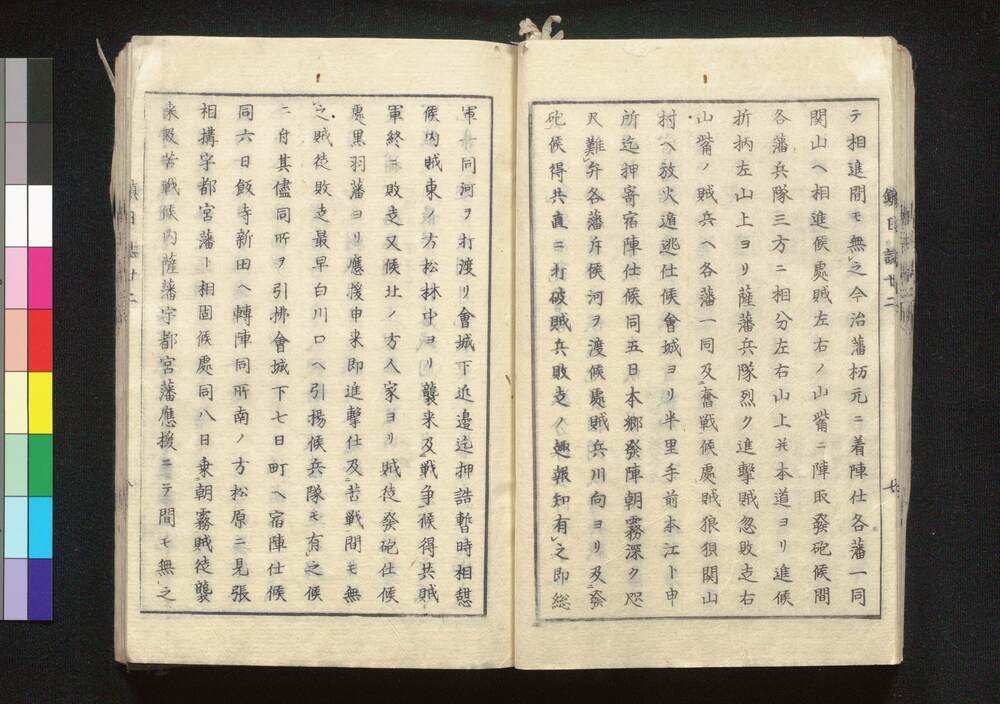 テ相進間モ無之今治藩杤元ニ着陣仕各藩一同
関山ヘ相進候處賊左右ノ山觜ニ陣取發砲候間
各藩兵隊三方ニ相分左右山上并本道ヨリ進候
折柄左山上ヨリ薩藩兵隊烈ク進擊賊忽敗走右
山觜ノ賊兵ヘ各藩一同及奮戰候處賊狼狽関山
村ヘ放火遁逃仕候會城ヨリ半里手前本江ト申
所迄押寄宿陣仕候同五日本郷發陣朝霧深ク咫
尺難弁各藩斥候河ヲ渡候處賊兵川向ヨリ及發
砲候得共直ニ打破賊兵敗走ノ趣報知有之即総
軍并同河ヲ打渡リ會城下近邊迄押詰暫時相憩
候内賊東ノ方松林中ヨリ襲来及戦争候得共賊
軍終ニ敗走又候北ノ方人家ヨリ賊徒發砲仕候
處黒羽藩ヨリ應援申来即進擊仕及苦戦間モ無
之賊徒敗走最早白川口ヘ引揚候兵隊モ有之候
ニ付其儘同所ヲ引拂會城下七日町ヘ宿陣仕候
同六日飯寺新田ヘ轉陣同所南ノ方松原ニ見張
相搆宇都宮藩ト相固候處同八日乗朝霧賊徒襲
来及苦戦候内薩藩宇都宮藩應援ニテ間モ無之
鎮日誌廿二